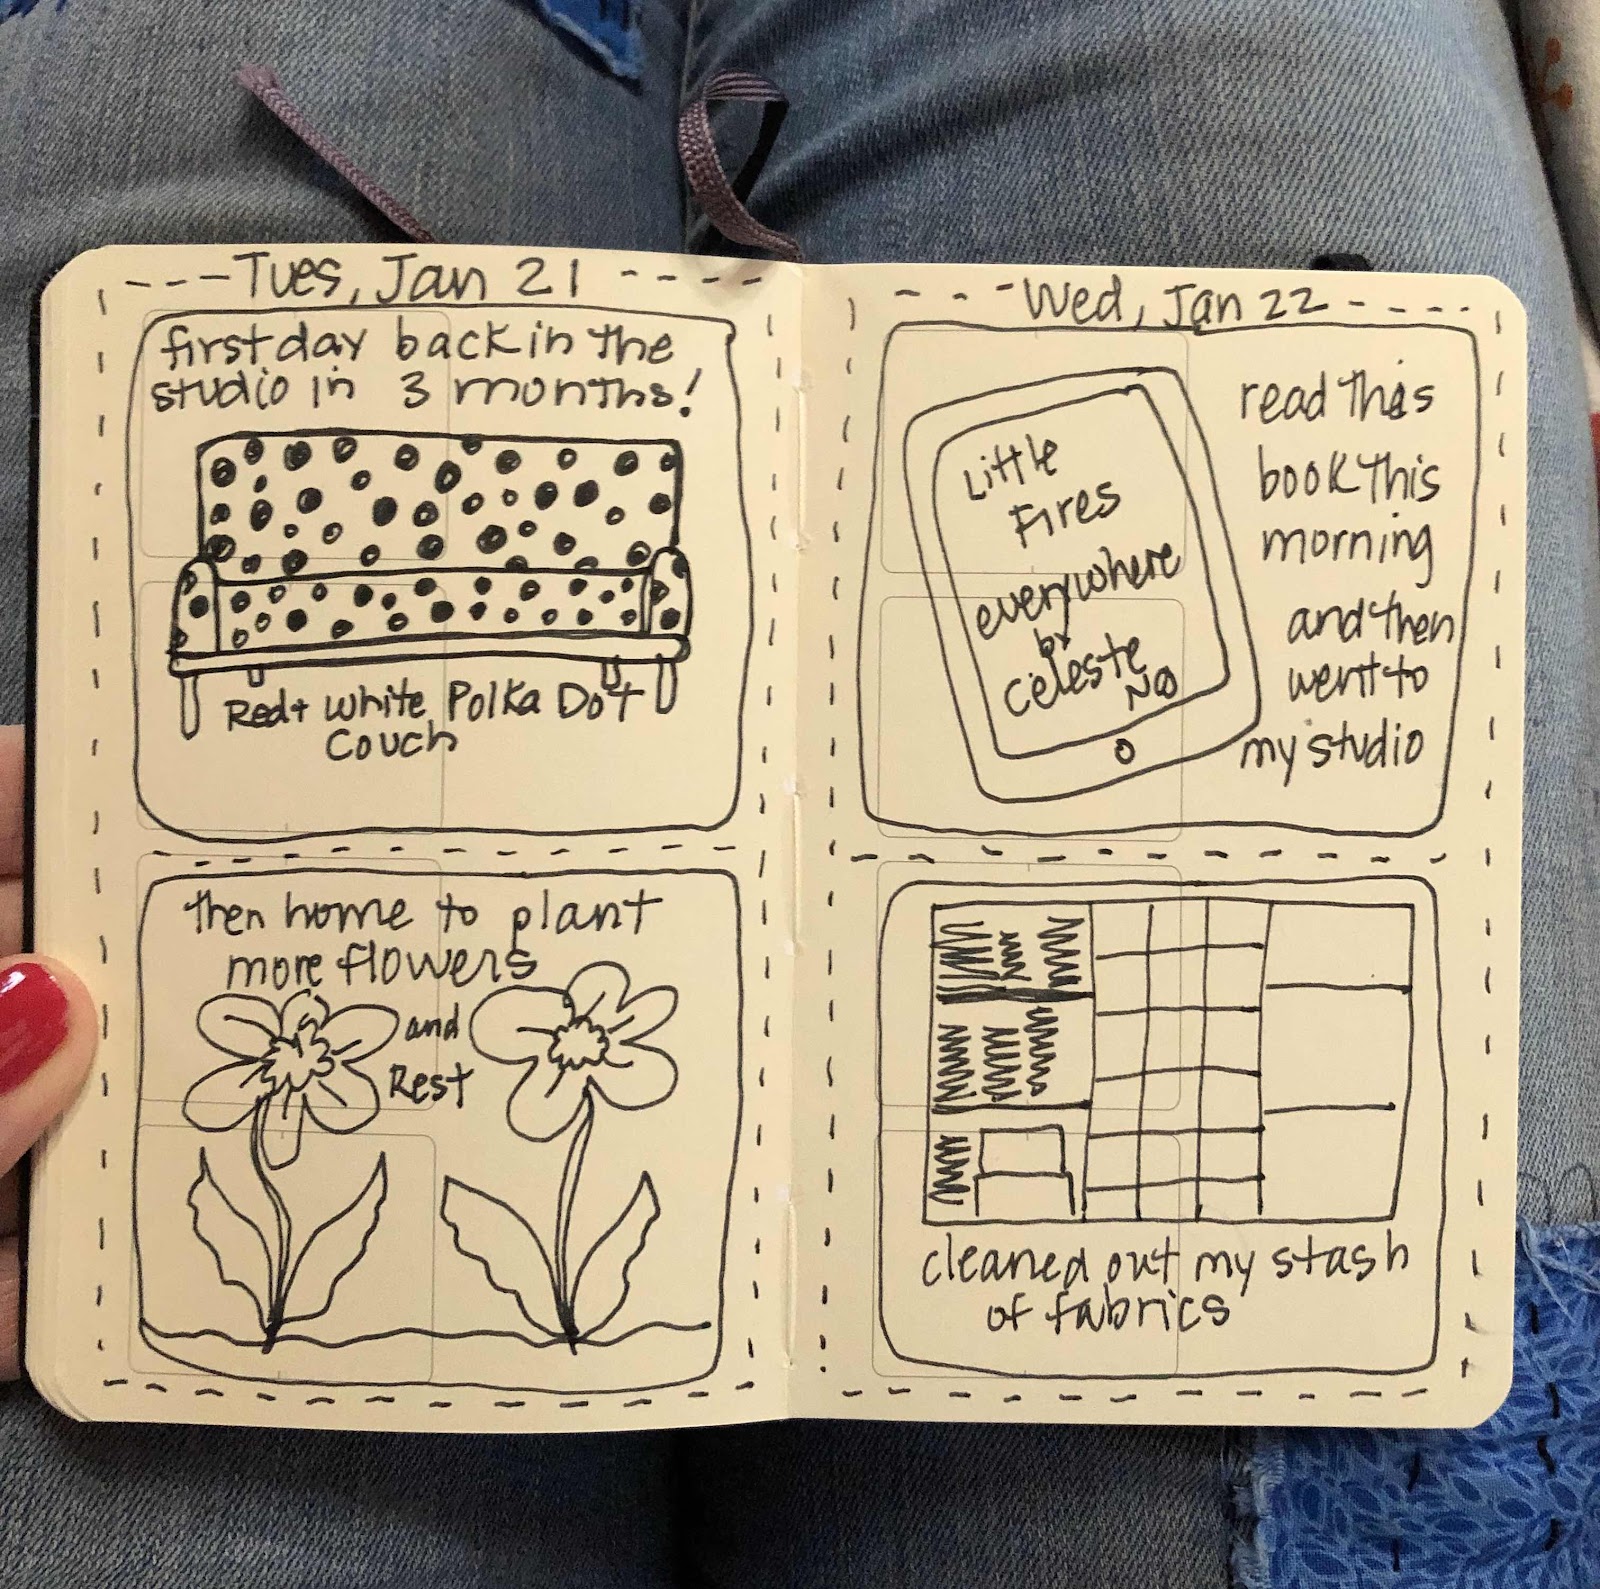 Tues, Jan 21
first day back in the
studio in 3 months!
Red + White Polka Dot
Couch
then home to plant
more flowers
and
Rest
Wed, Jan 22
Little
Fires
everywhere
by
Celeste
NG
read this
book this
morning
and then
went to
my studio
cleaned out my stash
of fabrics